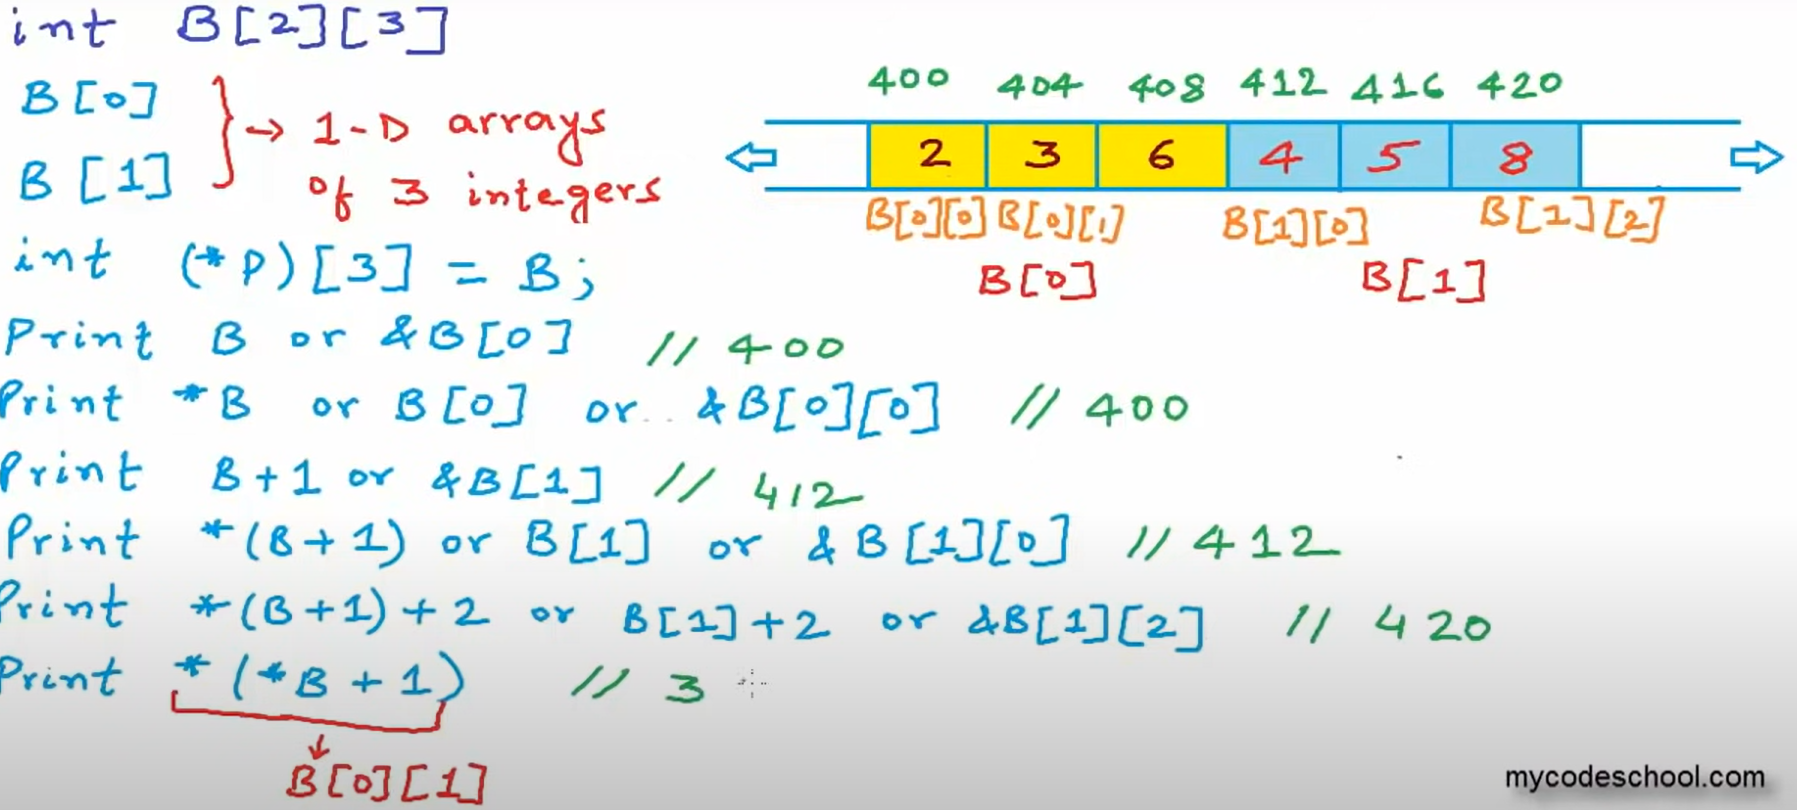 int B[2][3]
B[0]
B[1]
→ 1-D arrays
of 3 integers
int (*P)[3] = B;
400 404 408 412 416 420
2 3 6 4 5 8
B[0][0] B[0][1] B[1][0] B[1][2]
B[0] B[1]
Print B or &B[0] // 400
Print *B or B[0] or &B[0][0] // 400
Print B+1 or &B[1] // 412
Print *(B+1) or B[1] or &B[1][0] // 412
Print *(B+1)+2 or B[1]+2 or &B[1][2] // 420
Print *(*B+1) // 3
B[0][1]
mycodeschool.com